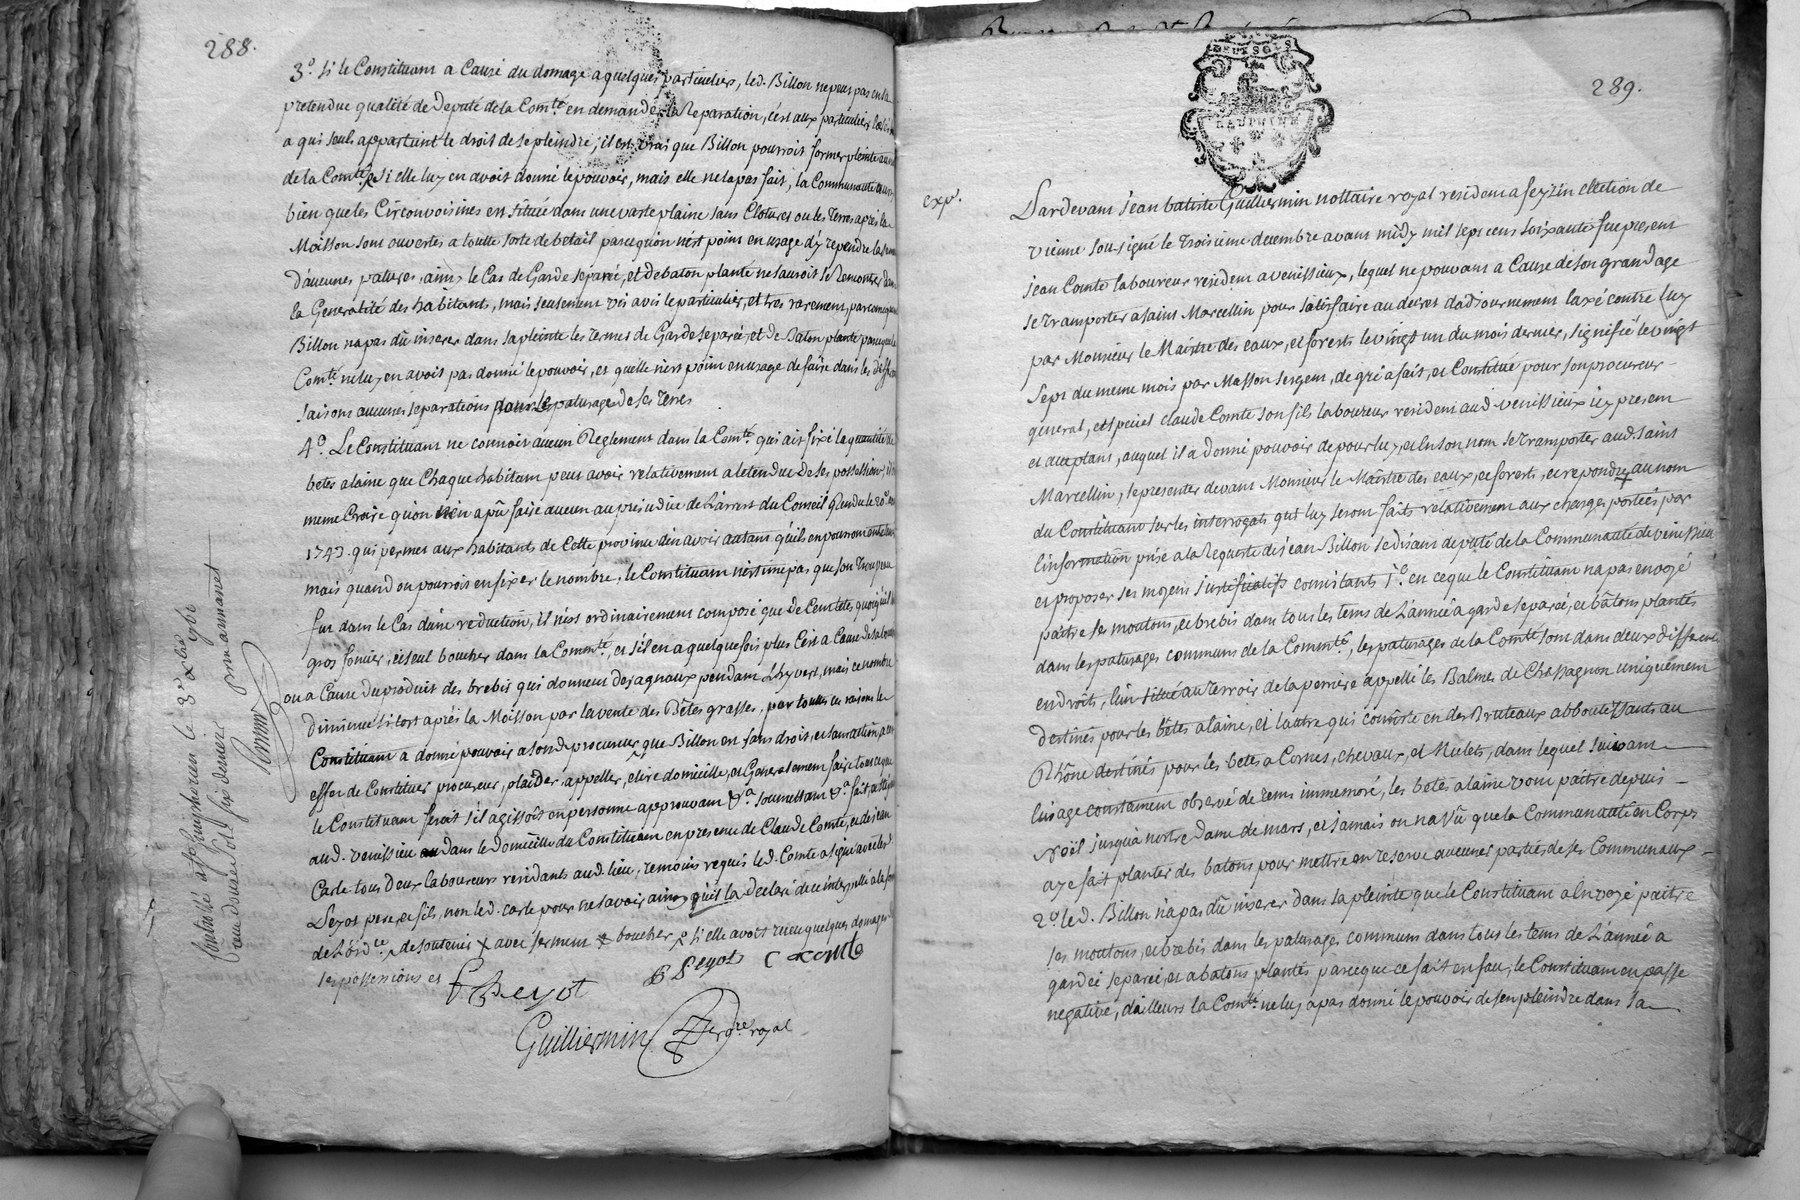 288.
3.° si le Constituant a Causé du domage a quelques particuliers, led. Billon ne peut pas en sa
pretendue qualité de deputé de la Com.té en demander la Reparation, c'est aux particuliers
a qui seuls appartient le droit de se pleindre; il est vrai que Billon pourroit former pleinte
de la Com.té si elle luy en avoit donné le pouvoir, mais elle ne la pas fait, la Communauté
bien que les Circonvoisines est située dans une vaste plaine sans Clotures ou les Terres après la
Moisson sont ouvertes a toutte sorte de betail parcequ'on n'est point en usage d'y
d'aucunes patures, ainsi le Cas de Garde separée, et de baton planté ne sauroit se Remontrer dans
la Generalité des habitants, mais seulement vis avis le particulier, et tres rarement, par consequent
Billon n'a pas dû inserer dans sa pleinte les termes de Garde separée, et de Baton planté parceque la
Com.té ne luy en avoit pas donné le pouvoir, et quelle n'est point en usage de faire dans les
saisons aucunes separations pour le paturage de ses Terres
4.° Le Constituant ne connoit aucun Reglement dans la Com.té qui ait fixé la quantité de
betes a laine que Chaque habitant peut avoir relativement a l'etendue de ses possessions,
meme Croire qu'on n'en a pû faire aucun au prejudice de L'arrest du Conseil Rendu le 20.e
1743. qui permet aux habitants de Cette province d'en avoir autant qu'ils en pourront
mais quand on pourroit en fixer le nombre, le Constituant n'estime pas que son Troupeau
fut dans le Cas d'une reduction, il n'est ordinairement composé que de Cent betes, quoiqu'il
gros fermier, et seul boucher dans la Comm.té, et s'il en a quelquefois plus C'est a Cause de sa
ou a Cause du produit des brebis qui donnent des agneaux pendant L'hyver, mais ce nombre
diminue sitot après la Moisson par la vente des Bêtes grasses, par touttes ces raisons le
Constituant a donné pouvoir a son d. procureur que Billon est sans droit, et sans action, a cet
effet de Constituer procureur, plaider, appeller, elire domicille, et Generalement faire tout ce que
le Constituant feroit s'il agissoit en personne approuvant &.a soumettant &.a fait,
aud. venissieu dans le domicille du Constituant en presence de Claude Comte, et de jean
Carle tous deux laboureurs residants aud. lieu, temoins requis led. Comte a signé avec les d.
Peyot pere, et fils, non led. Carle pour ne savoir ainsy qu'il la declaré de ce interpellé a la forme
de L'ord.ce de soutenir avec serment boucher si elle avoit reçu quelques domages
ses possessions et
Peyot
Peyot C comte
Guilliermin no.re royal
Controllé a st Simphorien le 3.e Xbre 1760
Reçu douze sols six deniers
289.
DEUX SOLS
DAUPHINE
exp.é
Pardevant jean batiste Guilliermin nottaire royal resident a feyzin election de
vienne sous-signé le Troisieme decembre avant midy mil sept cens soixante fut present
jean Comte laboureur resident a venissieux, lequel ne pouvant a Cause de son grand age
se Transporter a saint Marcellin pour satisfaire au decret d'adjournement laxé contre luy
par Monsieur le Maitre des eaux, et forests le vingt un du mois dernier, signifié le vingt
sept du meme mois par Masson sergent, de gré a fait, et Constitué pour son procureur
general, et special claude Comte son fils laboureur resident aud. venissieux icy present
et acceptant, auquel il a donné pouvoir de pour luy, et en son nom se Transporter aud. saint
Marcellin, se presenter devant Monsieur le Maitre des eaux, et forests, et repondre au nom
du Constituant sur les interrogats qui luy seront faits relativement aux charges portées par
l'information prise a la Requeste de jean Billon se disant deputé de la Communauté de venissieu
et proposer ses moyens justificatifs consistants 1.° en ce que le Constituant n'a pas envoyé
paitre ses moutons, et brebis dans tous les tems de L'année a garde separée, et bâtons plantés
dans les paturages communs de la Comm.té, les paturages de la Com.té sont dans deux differents
endroits, l'un situé au Terroir de la perriere appellé les Balmes de Chassagnon uniquement
destinés pour les bêtes a laine, et l'autre qui consiste en des Bruteaux abboutissants au
Rhône destinés pour les betes a Cornes, chevaux, et Mulets, dans lequel suivant
l'usage constament observé de tems immemoré, les betes a laine vont paitre depuis
noël jusqu'a nostre dame de mars, et jamais on n'a vû que la Communauté en Corps
aye fait planter des batons pour mettre en reserve aucunes parties de ses Communaux
2.° led. Billon n'a pas dû inserer dans sa pleinte que le Constituant a Envoyé paitre
ses moutons, et brebis dans les paturages communs dans tous les tems de L'année a
garde separée, et a batons plantés parceque ce fait est faux, le Constituant en passe
negative, d'ailleurs la Com.té ne luy a pas donné le pouvoir de s'en pleindre dans sa